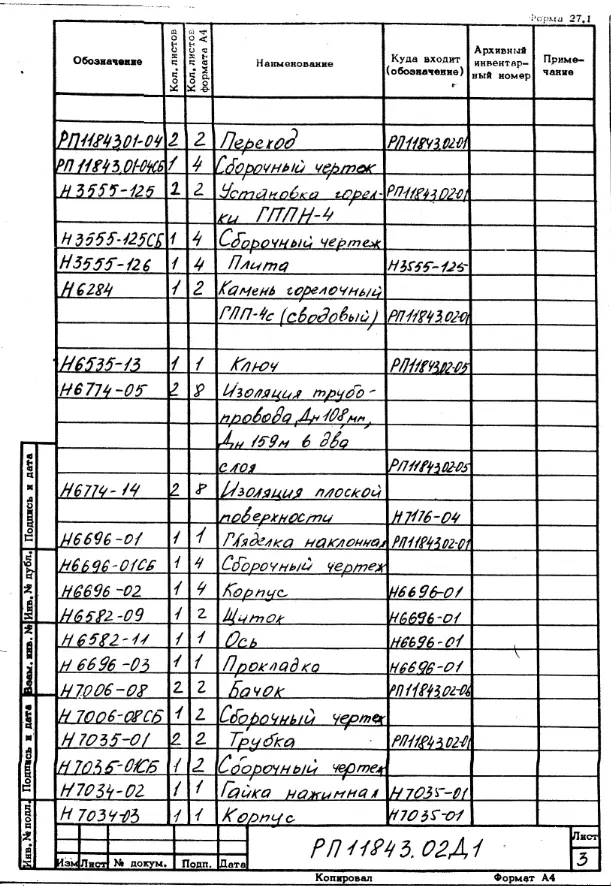 Форма 27.1
Обозначение Кол. листов Кол. листов формата А4 Наименование Куда входит (обозначение) Архивный инвентарный номер Примечание
РП11843.01-04 2 2 Переход РП11843.02-01
РП 11843.01-04СБ 1 4 Сборочный чертеж
Н3555-125 2 2 Установка горел- РП11843.02-01
ки ГППН-4
Н3555-125СБ 1 4 Сборочный чертеж
Н3555-126 1 4 Плита Н3555-125
Н6284 1 2 Камень горелочный
ГПП-4с (сводовый) РП11843.02-01
Н6535-13 1 1 Ключ РП11843.02-05
Н6774-05 2 8 Изоляция трубо-
провода Дн 108мм,
Дн 159м в два
слоя РП11843.02-05
Н6774-14 2 8 Изоляция плоской
поверхности Н7176-04
Н6696-01 1 1 Гляделка наклонная РП11843.02-01
Н6696-01СБ 1 4 Сборочный чертеж
Н6696-02 1 4 Корпус Н6696-01
Н6582-09 1 2 Щиток Н6696-01
Н6582-11 1 1 Ось Н6696-01
Н6696-03 1 1 Прокладка Н6696-01
Н7006-08 2 2 Бачок РП11843.02-06
Н7006-08СБ 1 2 Сборочный чертеж
Н7035-01 2 2 Трубка РП11843.02-01
Н7035-01СБ 1 2 Сборочный чертеж
Н7034-02 1 1 Гайка нажимная Н7035-01
Н7034-03 1 1 Корпус Н7035-01
Подпись и дата
Инв. № дубл.
Взам. инв. №
Подпись и дата
Инв. № подл.
Изм Лист № докум. Подп. Дата
РП11843.02Д1
Лист
3
Копировал Формат А4